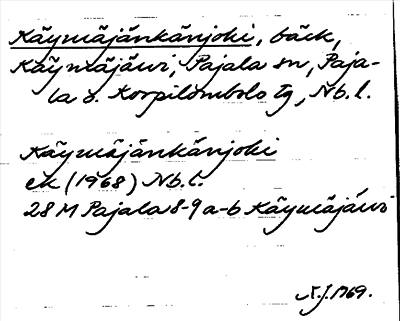 Käymäjänkänjoki, bäck,
Käymäjärvi, Pajala sn, Paja-
la o. Korpilombolo tg, Nb. l.
Käymäjänkänjoki
ek (1968) Nb. l.
28 M Pajala 8-9 a-b Käymäjärvi
N.J. 1969.